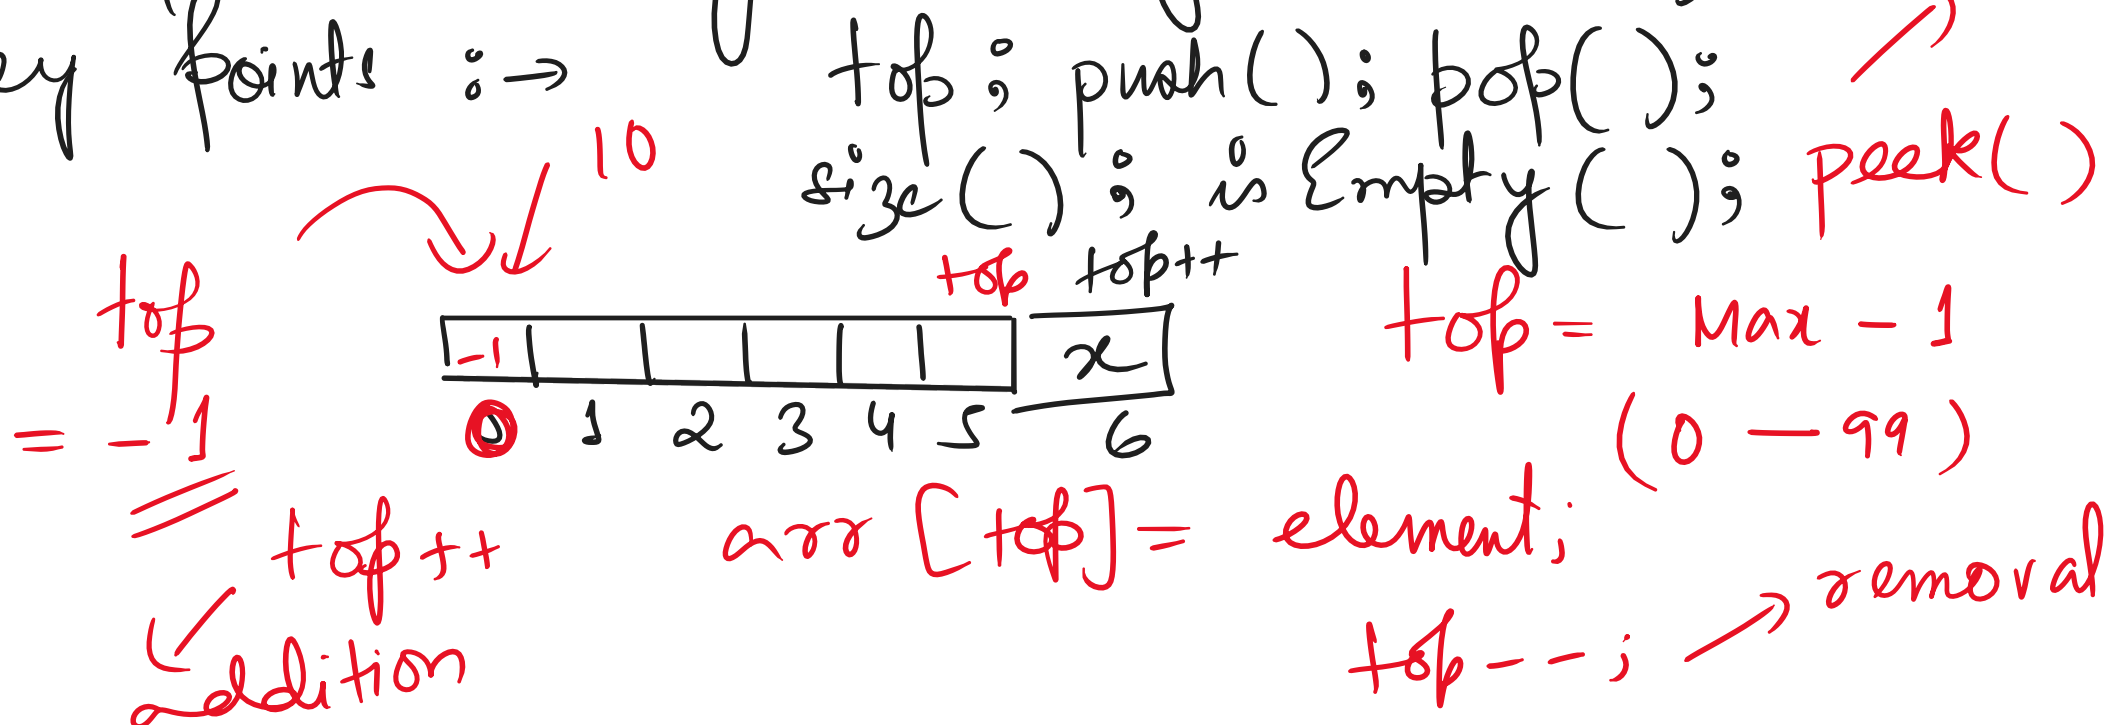 ey points :→ top; push(); pop();
size(); isEmpty(); peek()
10
top = -1
top top++
-1 x
0 1 2 3 4 5 6
top = Max - 1
(0 — 99)
top++
addition
arr[top] = element;
top--; → removal